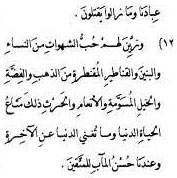 عبادتنا وما زالوا يفتلون .
(١٢) وزين لهم حب الشهوات من النساء
والبنين والقناطير المقنطرة من الذهب والفضة
والخيل المسومة والأنعام والحرث ذلك متاع
الحياة الدنيا وما تغني الدنيا عن الآخرة
وعندنا حسن المآب للمتقين .